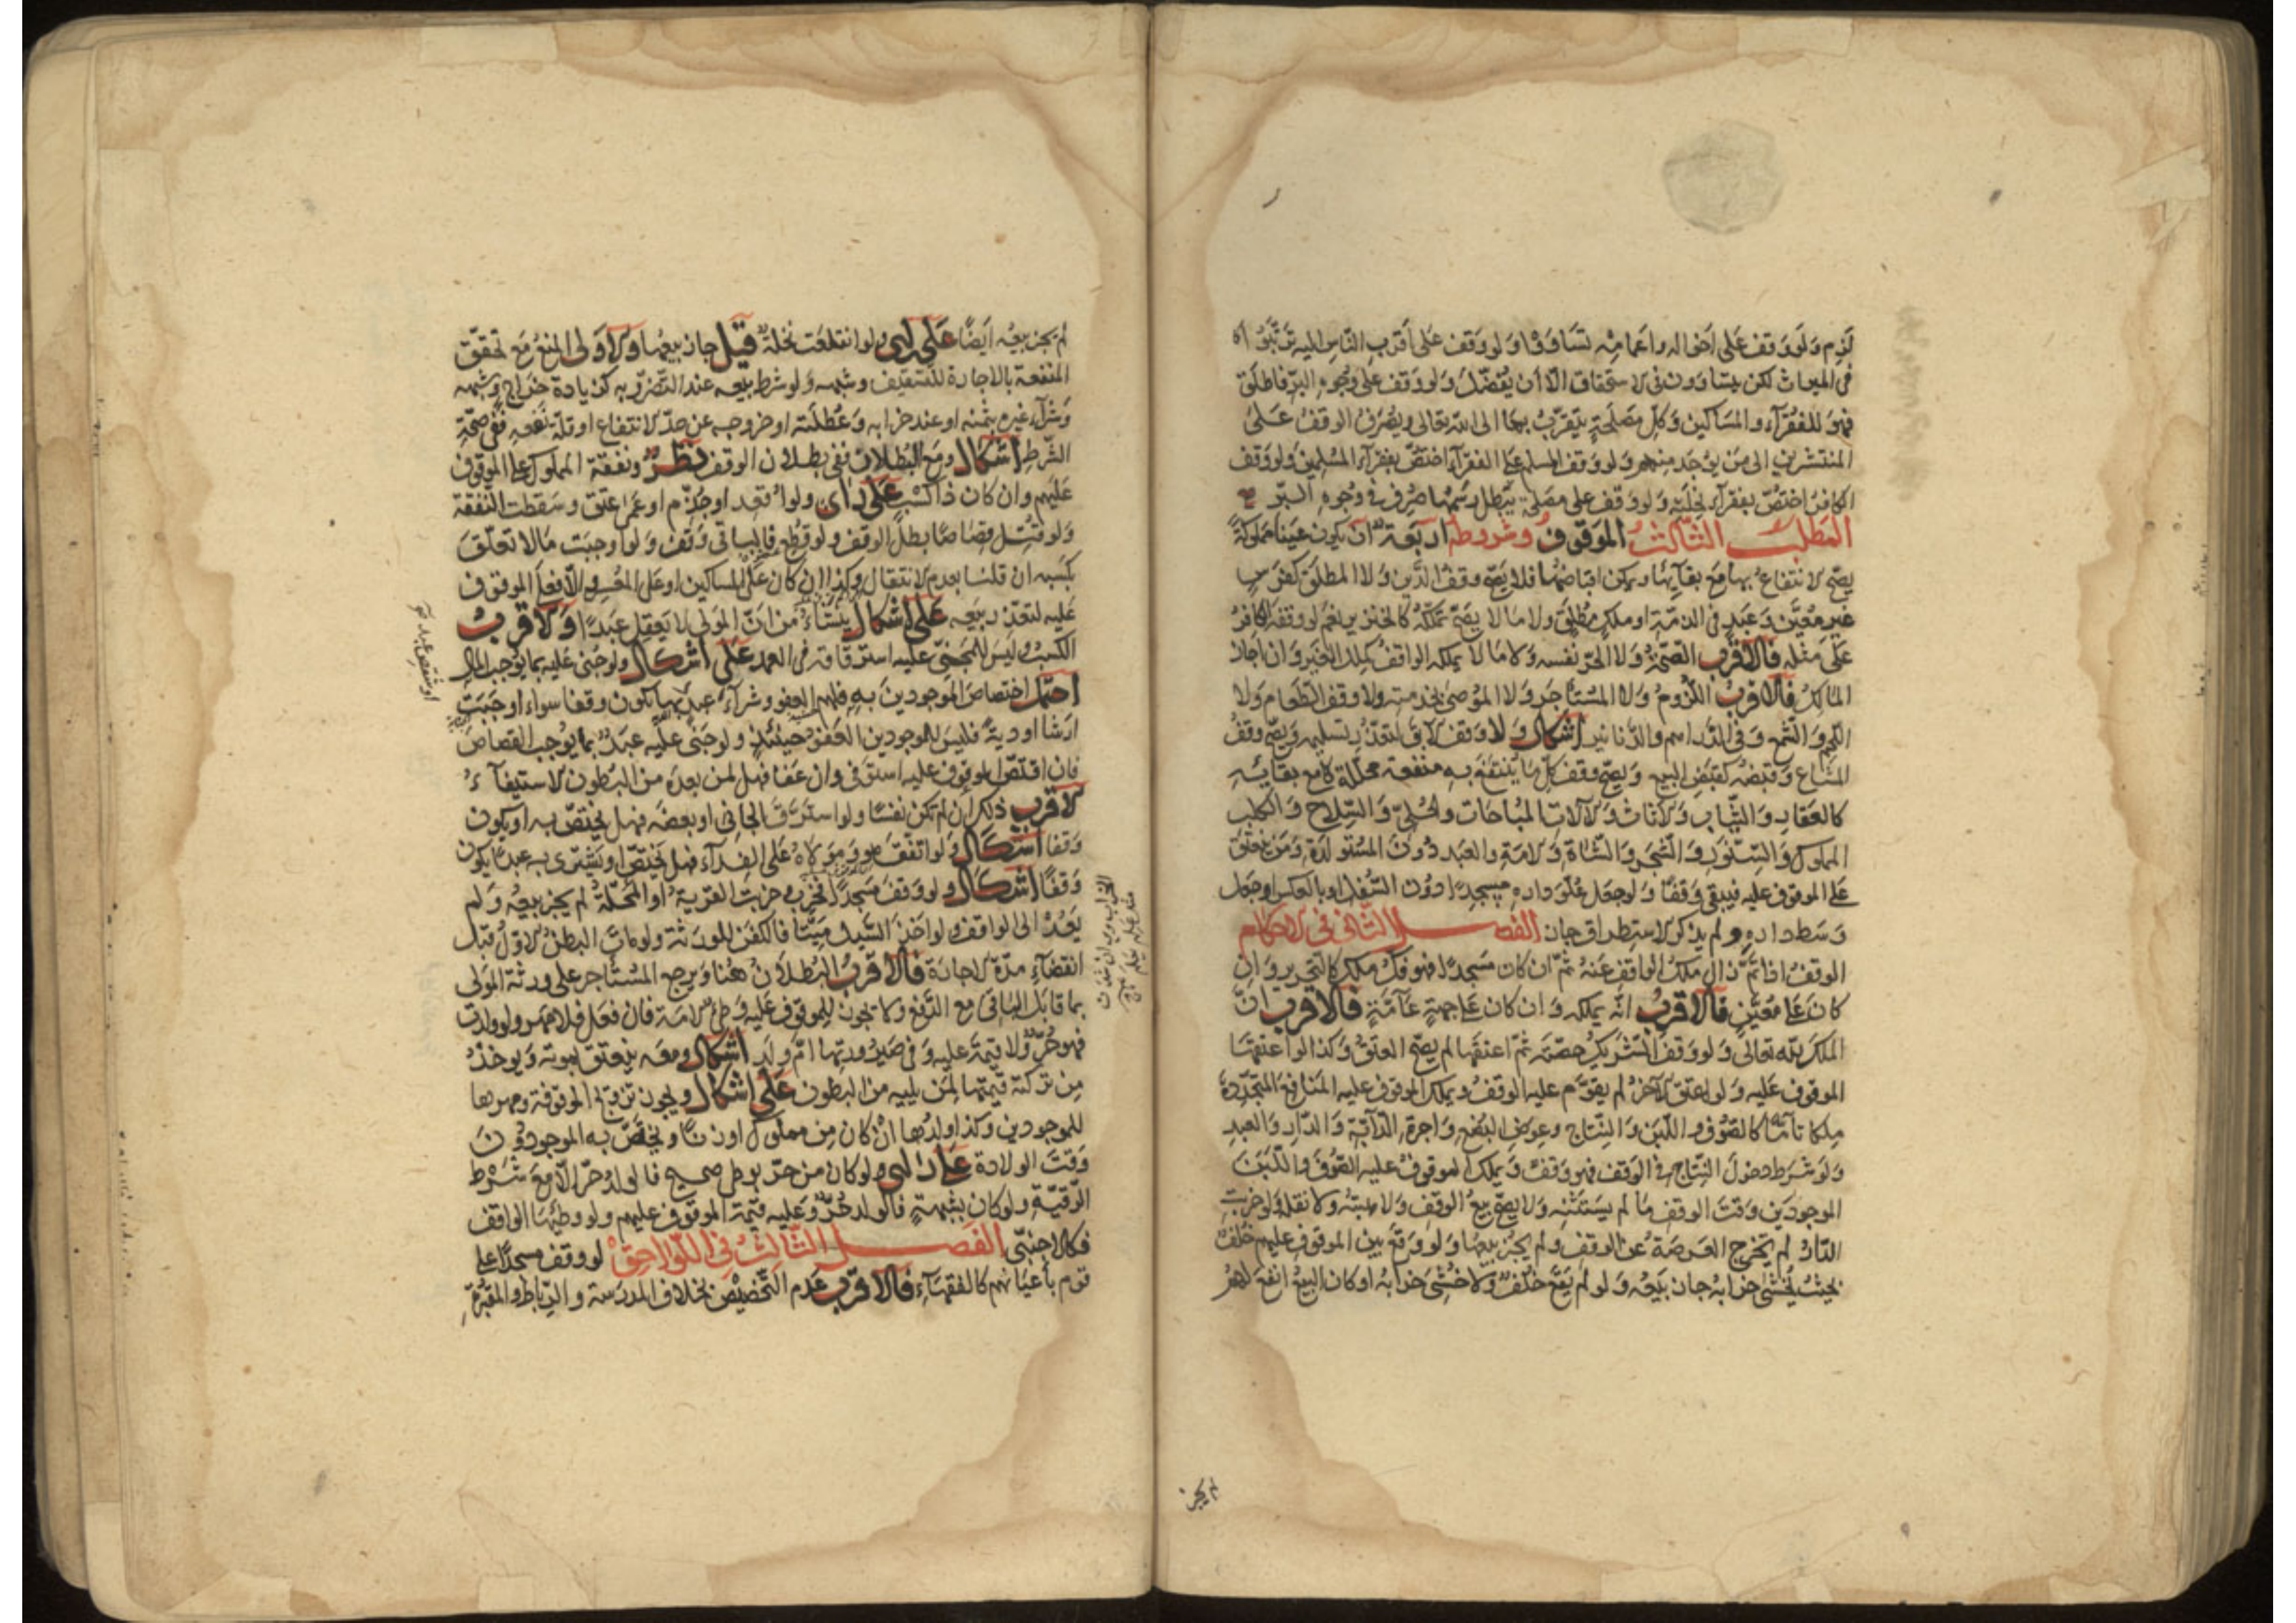 لزم ولو وقف على اخواله واعمامه تساووا ولو وقف على اقرب الناس اليه ترتبوا
في الميراث لكن يتساوون في الاستحقاق الا ان يفضل ولو وقف على وجوه البر فاطلق
فهو للفقرآء والمساكين وكل مصلحة يتقرب بها الى الله تعالى ويصرف الوقف على
المنتشرين الى من يوجد منهم ولو وقف المسلم على الفقرآء اختص بفقرآء المسلمين ولو وقف
الكافر اختص بفقرآء نحلته ولو وقف على مصلحة يبطل رسمها صرف في وجوه البر
المطلب الثالث الموقوف وشروطه اربعة ان يكون عينا مملوكة
يصح الانتفاع بها مع بقآئها ويمكن اقباضها فلا يصح وقف الدين ولا المطلق كفرس
غير معين وعبد في الذمة او ملك مطلق ولا ما لا يصح تملكه كالخنزير نعم لو وقفه الكافر
على مثله فالاقرب الصحة ولا الحر نفسه ولا ما لا يملكه الواقف كملك الغير وان اجاز
المالك فالاقرب اللزوم ولا المستأجر ولا الموصى بخدمته ولا وقف الطعام ولا
اللحم والشمع وفي الدراهم والدنانير اشكال ولا وقف الآبق لتعذر تسليمه ويصح وقف
المشاع وقبضه كقبض البيع ويصح وقف كل ما ينتفع به منفعة محللة مع بقائه
كالعقار والثياب والاثاث والآلات المباحات والحلي والسلاح والكلب
المملوك والسنور والشجر والشاة والامة والعبد دون المستولدة ومن ينعتق
على الموقوف عليه فيبقى وقفا ولو جعل علو داره مسجدا دون السفل او بالعكس او جعل
وسط داره ولم يذكر الاستطراق جاز الفصل الثاني في الاحكام
الوقف اذا تم زال ملك الواقف عنه ثم ان كان مسجدا فهو فك ملك كالتحرير وان
كان على معين فالاقرب انه يملكه وان كان على جهة عآمة فالاقرب ان
الملك لله تعالى ولو وقف الشريك حصته ثم اعتقها لم يصح العتق وكذا لو اعتقها
الموقوف عليه ولو اعتق الآخر لم يقوم عليه الوقف ويملك الموقوف عليه المنافع المتجددة
ملكا تآما كالصوف واللبن والنتاج وعوض البضع واجرة الدآبة والدار والعبد
ولو شرط دخول النتاج في الوقف فهو وقف ويملك الموقوف عليه الصوف واللبن
الموجودين وقت الوقف ما لم يستثنه ولا يصح بيع الوقف ولا هبته ولا نقله ولو خربت
الدار لم يخرج العرصة عن الوقف ولم يجز بيعها ولو وقع بين الموقوف عليهم خلف
بحيث يخشى خرابه جاز بيعه ولو لم يقع خلف ولا خشى خرابه او كان البيع انفع لهم
لم يجز
لم يجز بيعه ايضا على راى ولو انقلعت نخلة قيل جاز بيعها والاولى المنع مع تحقق
المنفعة بالاجارة للتسقيف وشبهه ولو شرط بيعه عند التضرر به كزيادة خراج وشبهه
وشرآء غيره بثمنه او عند خرابه وعطلته او خروجه عن حد الانتفاع او قلة نفعه ففي صحة
الشرط اشكال ومع البطلان ففي بطلان الوقف نظر ونفقة المملوك على الموقوف
عليهم وان كان ذا كسب على راى ولو اقعد او جذم او عمى عتق وسقطت النفقة
ولو قتل قصاصا بطل الوقف ولو قطع فالباقي وقف ولو اوجبت مالا تعلق
بكسبه ان قلنا بعدم الانتقال وكذا ان كان على المساكين او على المعسر والا فعلى الموقوف
عليه لتعذر بيعه على اشكال ينشاء من ان المولى لا يعقل عبدا والاقرب
الكسب وليس للمجنى عليه استرقاقه في العمد على اشكال ولو جنى عليه بما يوجب المال
احتمل اختصاص الموجودين به فلهم العفو وشرآء عبد بها تكون وقفا سواء اوجبت
ارشا او دية فليس للموجودين العفو حينئذ ولو جنى عليه عبد بما يوجب القصاص
فان اقتص الموقوف عليه استوفى وان عفا فهل لمن بعده من البطون الاستيفآء
الاقرب ذلك ان لم تكن نفسا ولو استرق الجاني او بعضه فهل يختص به او يكون
وقفا اشكال ولو اتفق هو ومولاه على الفدآء فهل يختص او يشترى به عبدا يكون
وقفا اشكال ولو وقف مسجدا فخرب وخربت القرية او المحلة لم يجز بيعه ولم
يعد الى الواقف ولو اخذ السيل ميتا فالكفن للورثة ولو مات البطن الاول قبل
انقضآء مدة الاجارة فالاقرب البطلان هنا ويرجع المستاجر على ورثة المولى
بما قابل الباقي مع الدفع ولا يجوز للموقوف عليه وطئ الامة فان فعل فلا مهر ولو ولدت
فهو حر ولا قيمة عليه وفي صيرورتها ام ولد اشكال ومعه ينعتق بموته ويوخذ
من تركته قيمتها لمن يليه من البطون على اشكال ويجوز تزويج الموقوفة ومهرها
للموجودين وكذا ولدها ان كان من مملوك او زنا ويختص به الموجودون
وقت الولادة على راى ولو كان من حر بوطى صحيح فالولد حر الا مع شرط
الرقية ولو كان بشبهة فالولد حر وعليه قيمة الموقوف عليهم ولو وطئها الواقف
فكالاجنبى الفصل الثالث في اللواحق لو وقف مسجدا على
قوم باعيانهم كالفقهآء فالاقرب عدم التخصيص بخلاف المدرسة والرباط والمقبرة